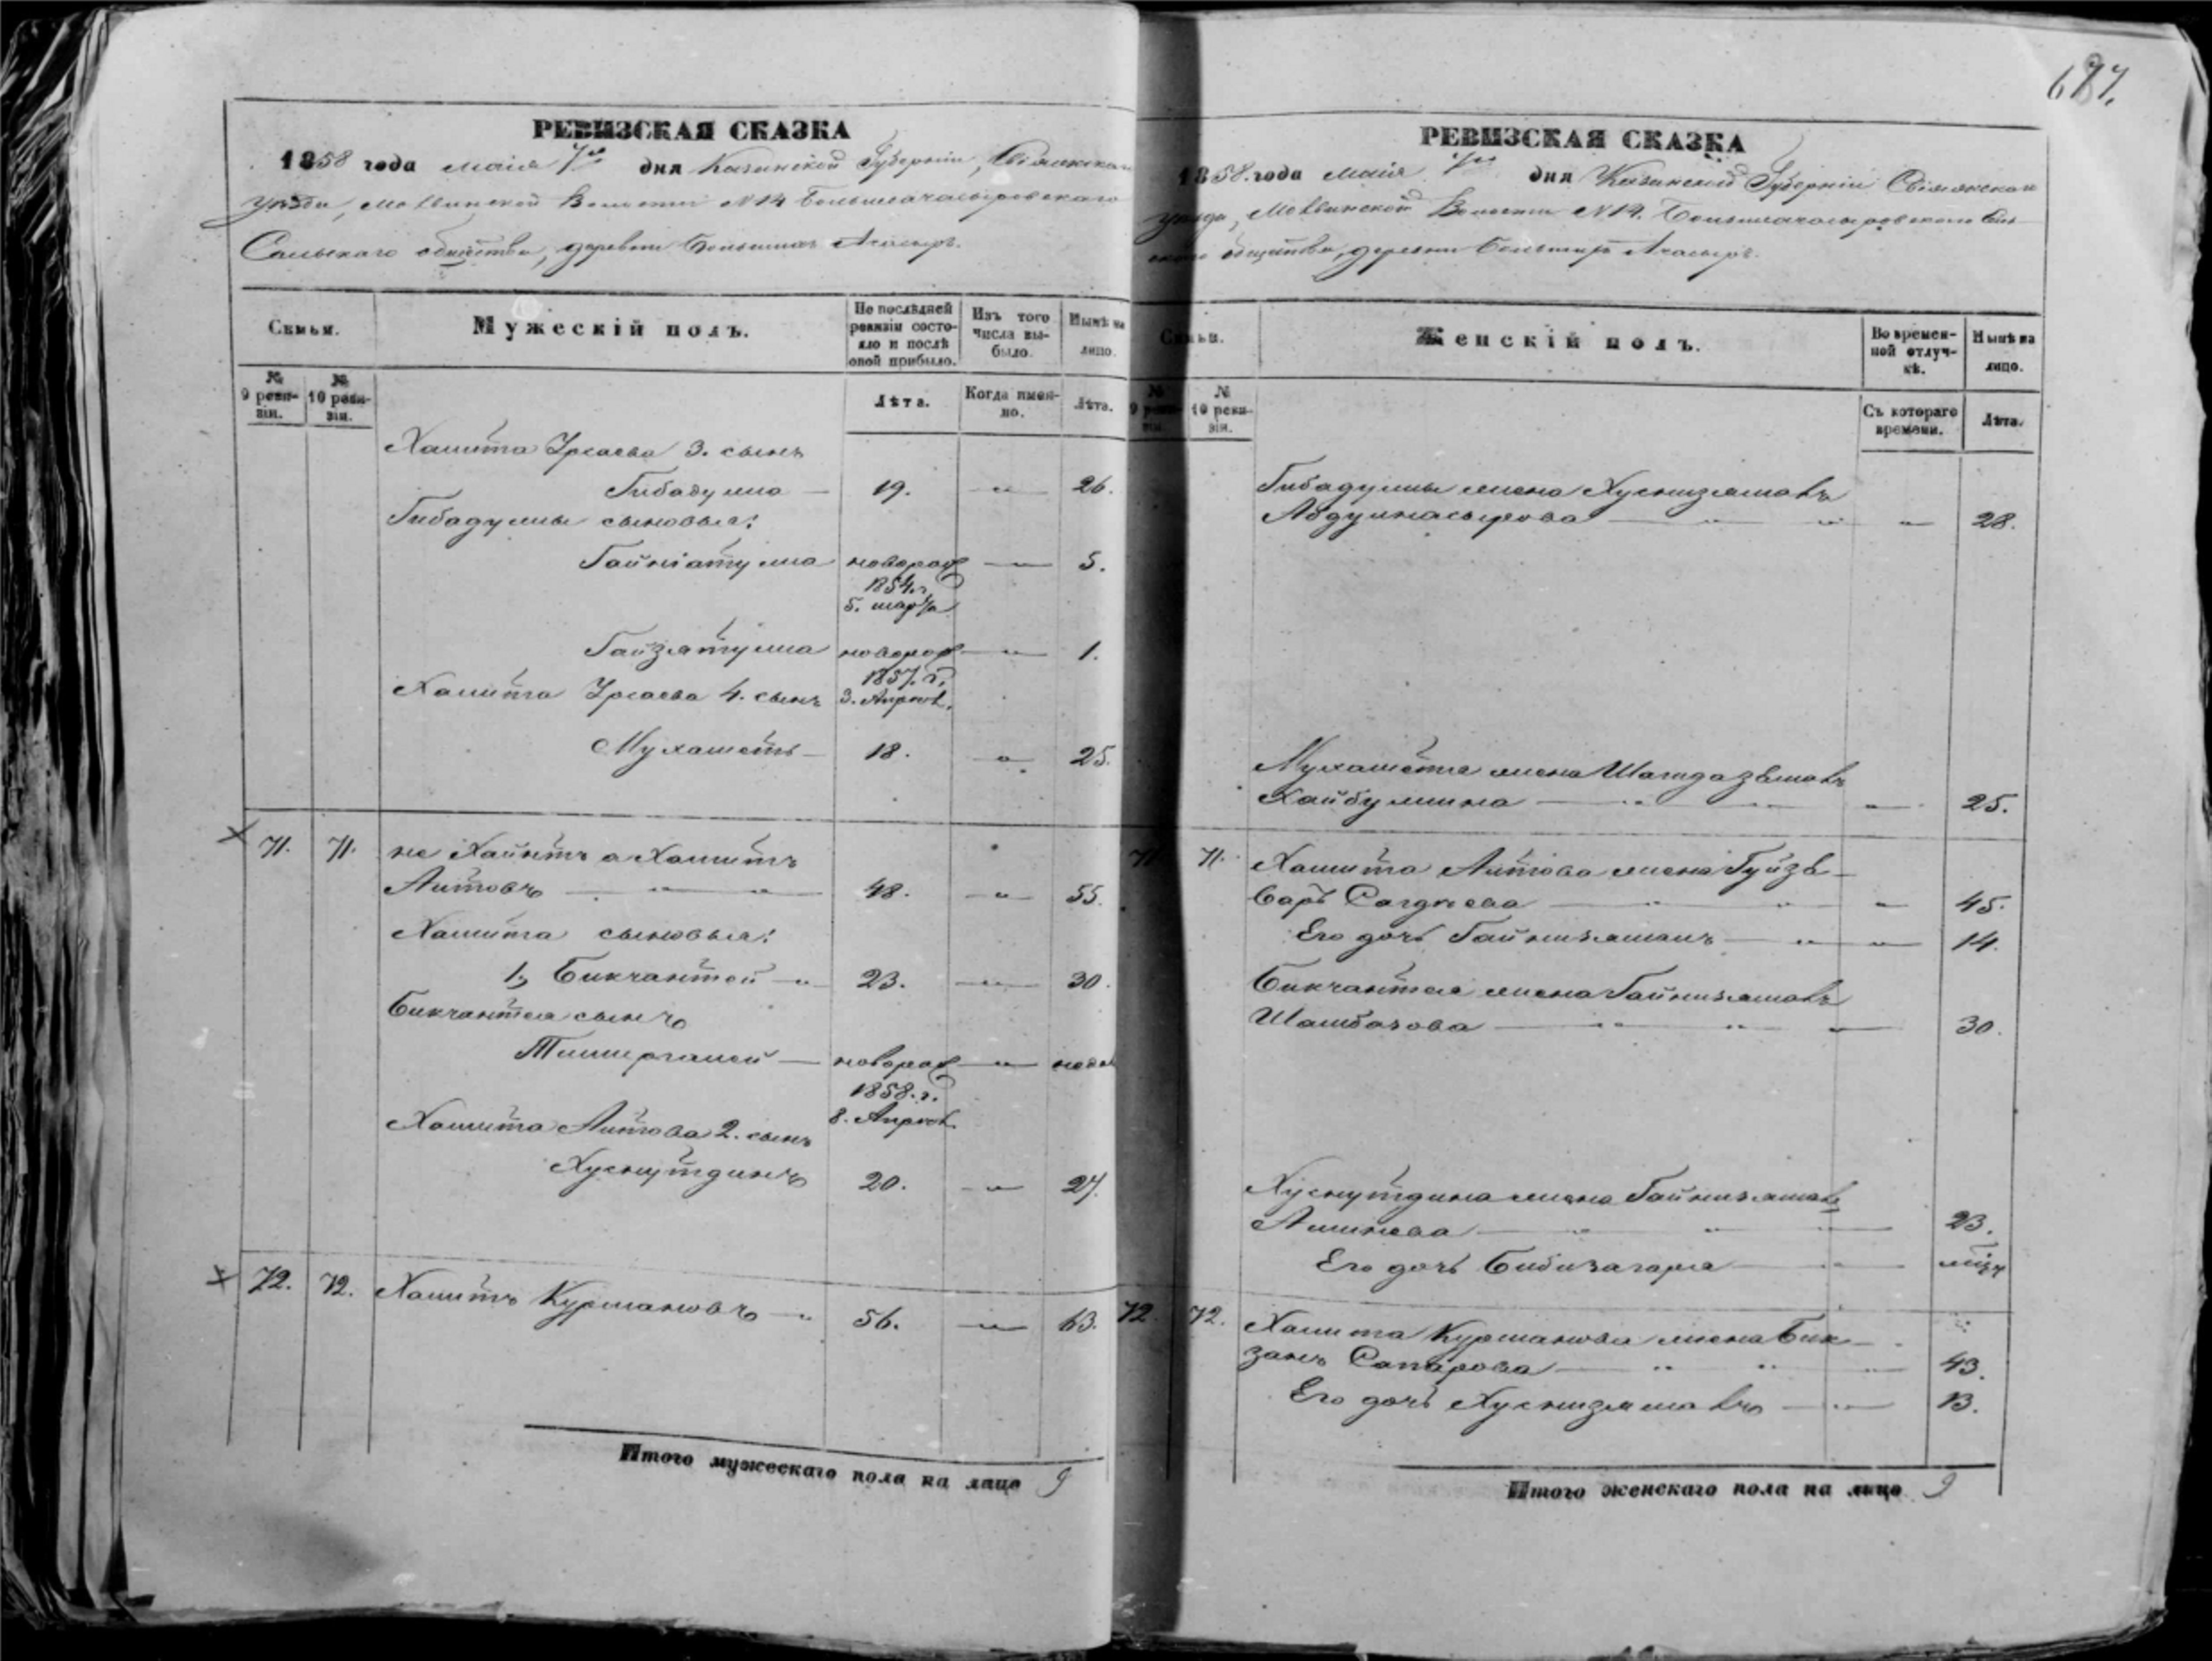 677.
РЕВИЗСКАЯ СКАЗКА
1858 года маія 7го дня Казанской Губерніи, Свіяжскаго
уѣзда, Моввинской Волости N 14 Большеачасыревскаго
Сельскаго общества, деревни Большихъ Ачасыръ.
Семьи.
Мужескій полъ.
По послѣдней ревизіи состояло и послѣ оной прибыло.
Изъ того числа выбыло.
Нынѣ на лицо.
№ 9 ревизіи.
№ 10 ревизіи.
Лѣта.
Когда именно.
Лѣта.
Хамита 3. сынъ
Гибадулла — 19. — " — 26.
Гибадуллы сыновья:
Гайніатулла новорож — " — 5.
1854. г.
5. марта
Гайзятулла новорож — " — 1.
1857. г.
Хамита 4. сынъ 3. Апрѣл.
Мухаметъ — 18. — " — 25.
71. 71. не Хаинтъ а Хамитъ
Аитовъ — " — " — 48. — " — 55.
Хамита сыновья:
1, Бикчантей — " 23. — " — 30.
Бикчантея сынъ
Тимиргалей — новорож — " — недел
1858. г.
8. Апрѣл
Хамита Аитова 2. сынъ
Хуснутдинъ 20. — " — 27.
72. 72. Хамитъ Курмановъ — " 56. — " — 63.
Итого мужескаго пола на лицо 9
РЕВИЗСКАЯ СКАЗКА
1858. года маія 7го дня Казанской Губерніи Свіяжскаго
уѣзда, Моввинской Волости N 14. Большеачасыровскаго Сель
скаго общества, деревни Большихъ Ачасыръ.
Семьи.
Женскій полъ.
Во временной отлучкѣ.
Нынѣ на лицо.
№ 9 ревизіи.
№ 10 ревизіи.
Съ котораго времени.
Лѣта.
Гибадуллы жена Хуснизямалъ
Абдулнасырова — " — " — " — 28.
Мухаметя жена Шагидазямалъ
Хайбуллина — " — " — " — 25.
71. 71. Хамита Аитова жена Гуйзѣ—
 Сагдѣева — " — " — " — 45.
Его дочь Гайнизямалъ — " — " — 14.
Бикчантея жена Гайнизямалъ
Шамбазова — " — " — " — 30.
Хуснутдина жена Гайнизямалъ
Аминева — " — " — " — 23.
Его дочь Бибизагаря — " —
72. 72. Хамита Курманова жена Бик—
занъ Сапарова — " — " — " — 43.
Его дочь Хуснизямалъ — " — 13.
Итого женскаго пола на лицо 9